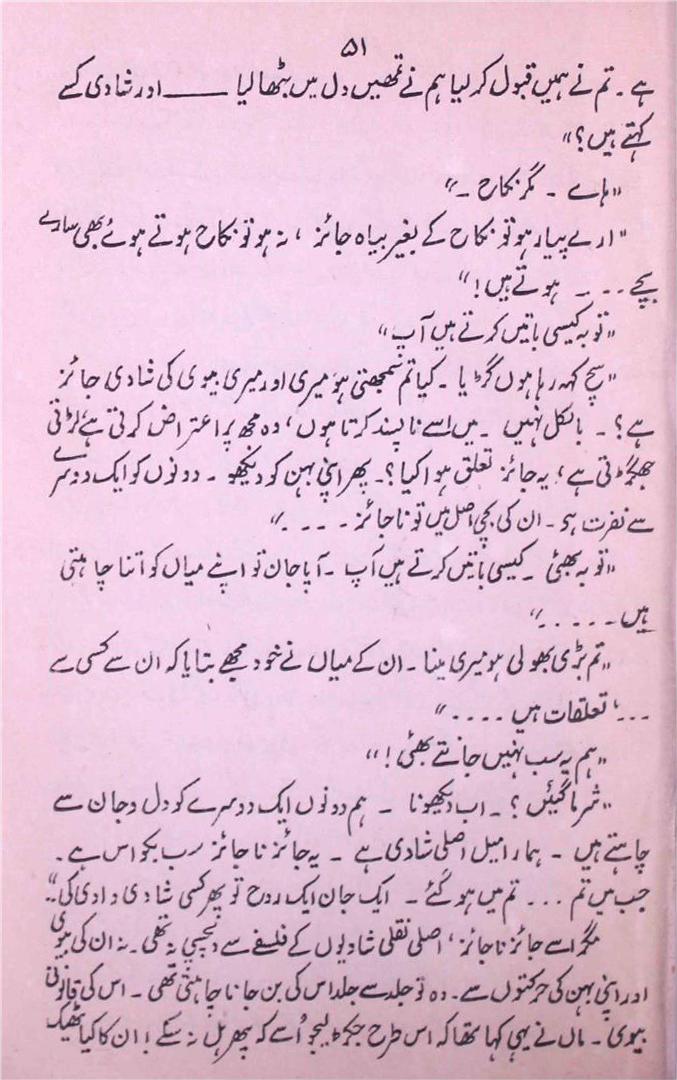 ۵۱
ہے ۔ تم نے ہمیں قبول کر لیا ہم نے تمھیں دل میں بٹھا لیا ــــــ اور شادی کسے
کہتے ہیں؟"
"ہاے ۔ مگر نکاح ۔"
"ارے پیار ہو تو نکاح کے بغیر بیاہ جائز ، نہ ہو تو نکاح ہوتے ہوئے بھی سارے
بچے ۔ ۔ ۔ ہوتے ہیں!"
"توبہ کیسی باتیں کرتے ہیں آپ"
"سچ کہہ رہا ہوں گڑیا ۔ کیا تم سمجھتی ہو میری اور میری بیوی کی شادی جائز
ہے؟ ۔ بالکل نہیں ۔ میں اسے ناپسند کرتا ہوں ، وہ مجھ پر اعتراض کرتی ہے لڑتی
جھگڑتی ہے ، یہ جائز تعلق ہوا کیا؟ ۔ پھر اپنی بہن کو دیکھو ۔ دونوں کو ایک دوسرے
سے نفرت ہے ۔ ان کی بچی اصل میں تو ناجائز ۔ ۔ ۔ ۔"
"توبہ بھئی ۔ کیسی باتیں کرتے ہیں آپ ۔ آپا جان تو اپنے میاں کو اتنا چاہتی
ہیں ۔ ۔ ۔ ۔ ۔"
"تم بڑی بھولی ہو میری مینا ۔ ان کے میاں نے خود مجھے بتایا کہ ان سے کسی سے
۔ ۔ ۔ تعلقات ہیں ۔ ۔ ۔ ۔"
"ہم یہ سب نہیں جانتے بھئی!"
"شرما گئیں؟ ۔ اب دیکھو نا ۔ ہم دونوں ایک دوسرے کو دل و جان سے
چاہتے ہیں ۔ ہمارا میل اصلی شادی ہے ۔ یہ جائز ناجائز سب بکواس ہے ۔
جب میں تم ۔ ۔ ۔ تم میں ہو گئے ۔ ایک جان ایک روح تو پھر کسی شادی وادی کی ۔"
مگر اسے جائز ناجائز ، اصلی نقلی شادیوں کے فلسفے سے دلچسپی نہ تھی ۔ نہ ان کی بیوی
اور اپنی بہن کی حرکتوں سے ۔ وہ تو جلد سے جلد اس کی بن جانا چاہتی تھی ۔ اس کی قانونی
بیوی ۔ ماں نے یہی کہا تھا کہ اس طرح جکڑ لیجو اُسے کہ پھر ہل نہ سکے ! ان کا کیا ٹھیک